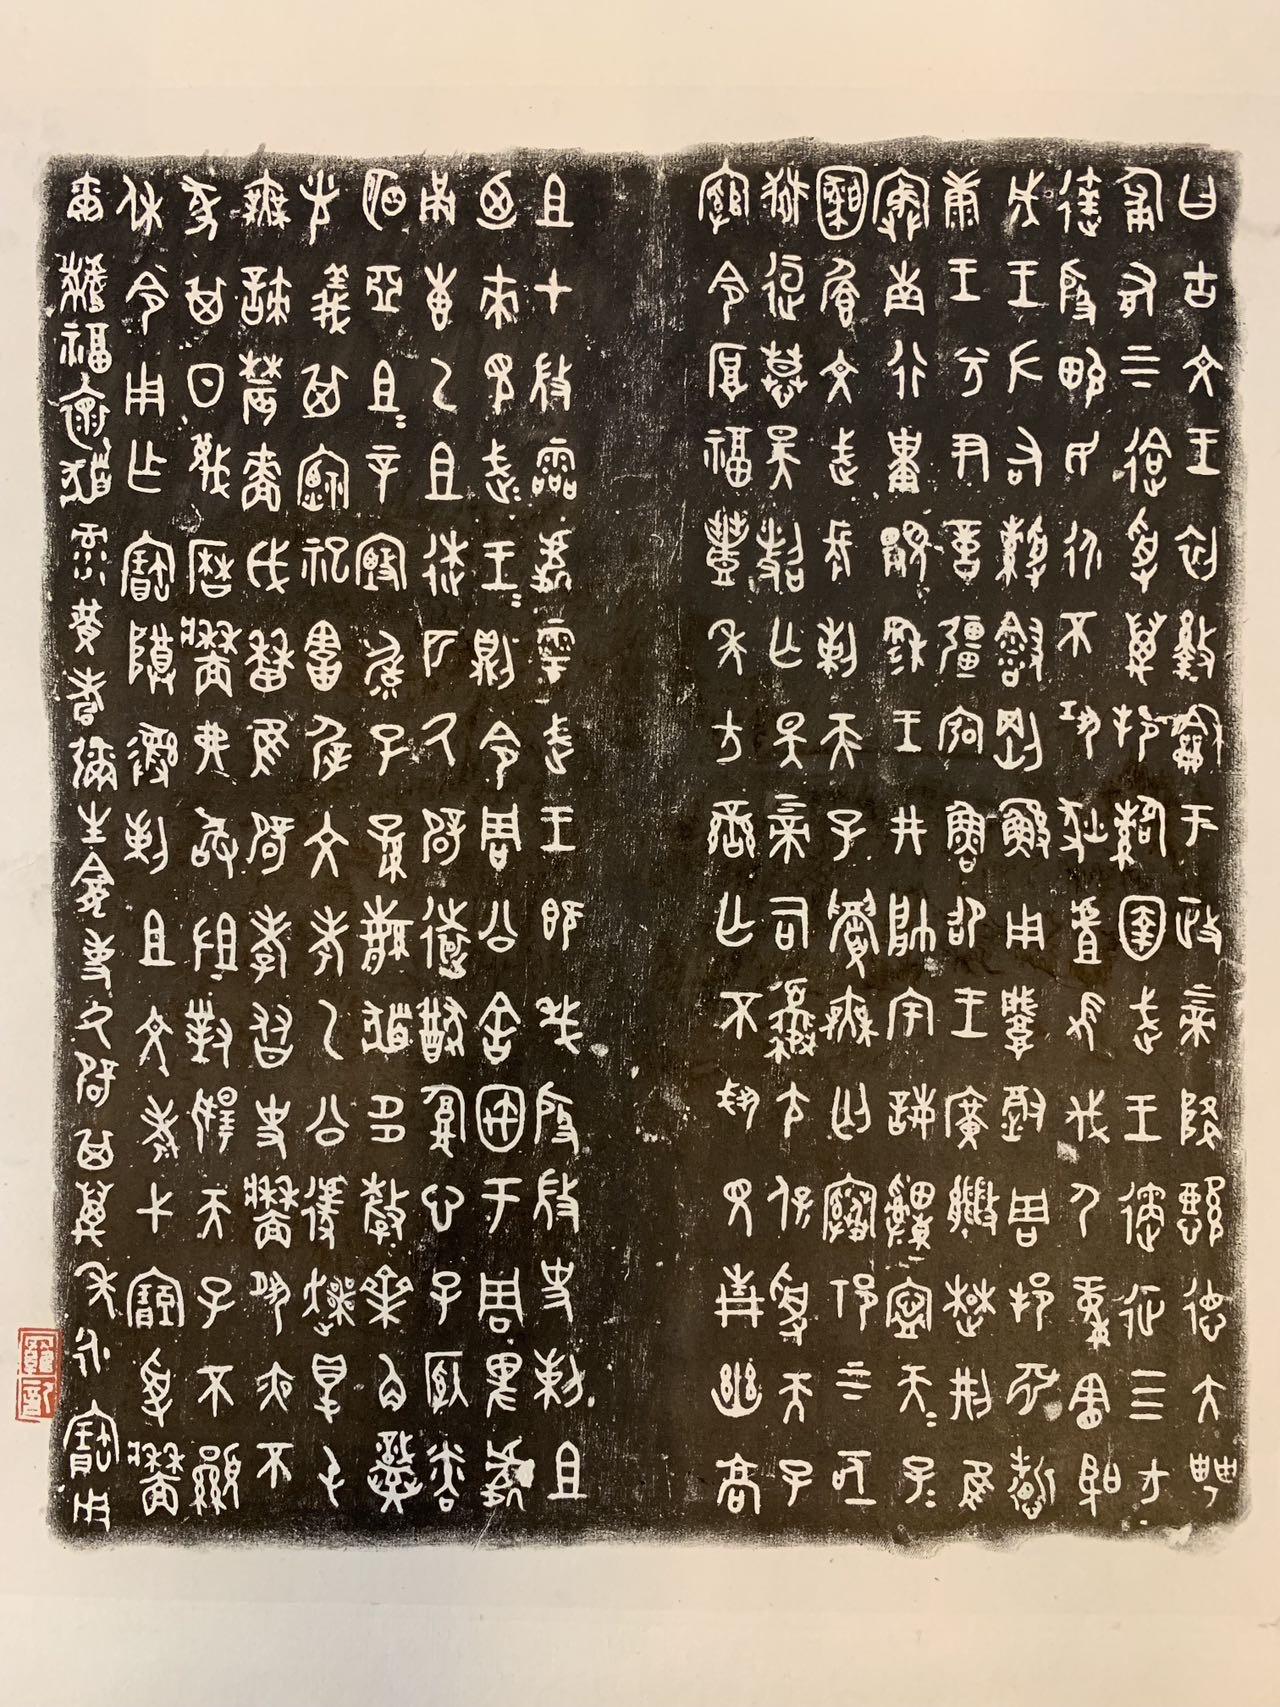 曰古文王初𢿛龢于政上帝降懿德大甹
匍有上下迨受萬邦圉武王遹征四方
達殷畯民永不巩狄虘𢼸伐尸童憲聖
成王左右綬剛鯀用肇徹周邦淵哲
康王兮尹啻彊宏魯卲王廣楚荊隹
寏南行祗顯穆王井帥宇誨申寧天子
天子圉文武長剌天子眉無匄祁上下
亟獄逗慕昊照亡斁上帝司夒尢保受天子
綰令厚福豐年方蠻亡不𢦚見青幽高
且才微霝處雩武王既𢦏殷微史剌且
廼來見武王武王則令周公舍宇于周卑處
甬叀乙且逑匹氒辟遠猷腹心子納粦
明亞且且辛毓子孫繁多釐齊角熾
光義其禋祀害屖文考乙公遽爽得屯
無諫農嗇戉曆隹辟孝友史墻夙夜不
墜其日蔑曆墻弗敢沮對揚天子不顯
休令用乍寶尊彝剌且文考弋受墻
爾福褱彔黃耇彌生龕事氒辟其萬年永寶用